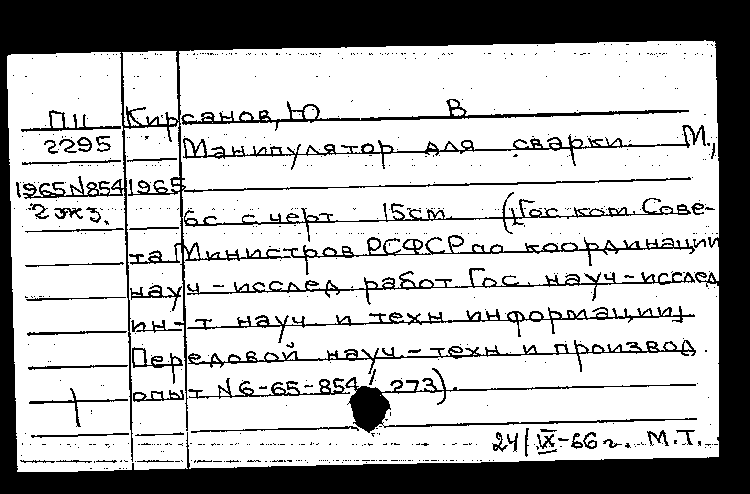 П11 Кирсанов, Ю В
2295 Манипулятор для сварки. М.,
1965 N854 1965
2 экз. 6с с черт 15см. (Гос. ком. Сове-
та Министров РСФСР по координации
науч-исслед. работ Гос. науч-исслед
ин-т науч. и техн. информации.
Передовой науч-техн. и производ.
опыт N 6-65-854/273).
24/IX-66 г. М.Т.